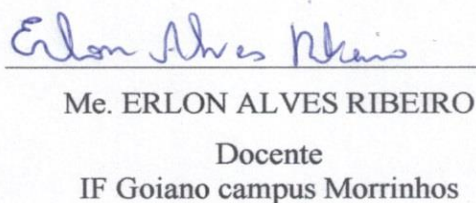 Erlon Alves Ribeiro
Me. ERLON ALVES RIBEIRO
Docente
IF Goiano campus Morrinhos